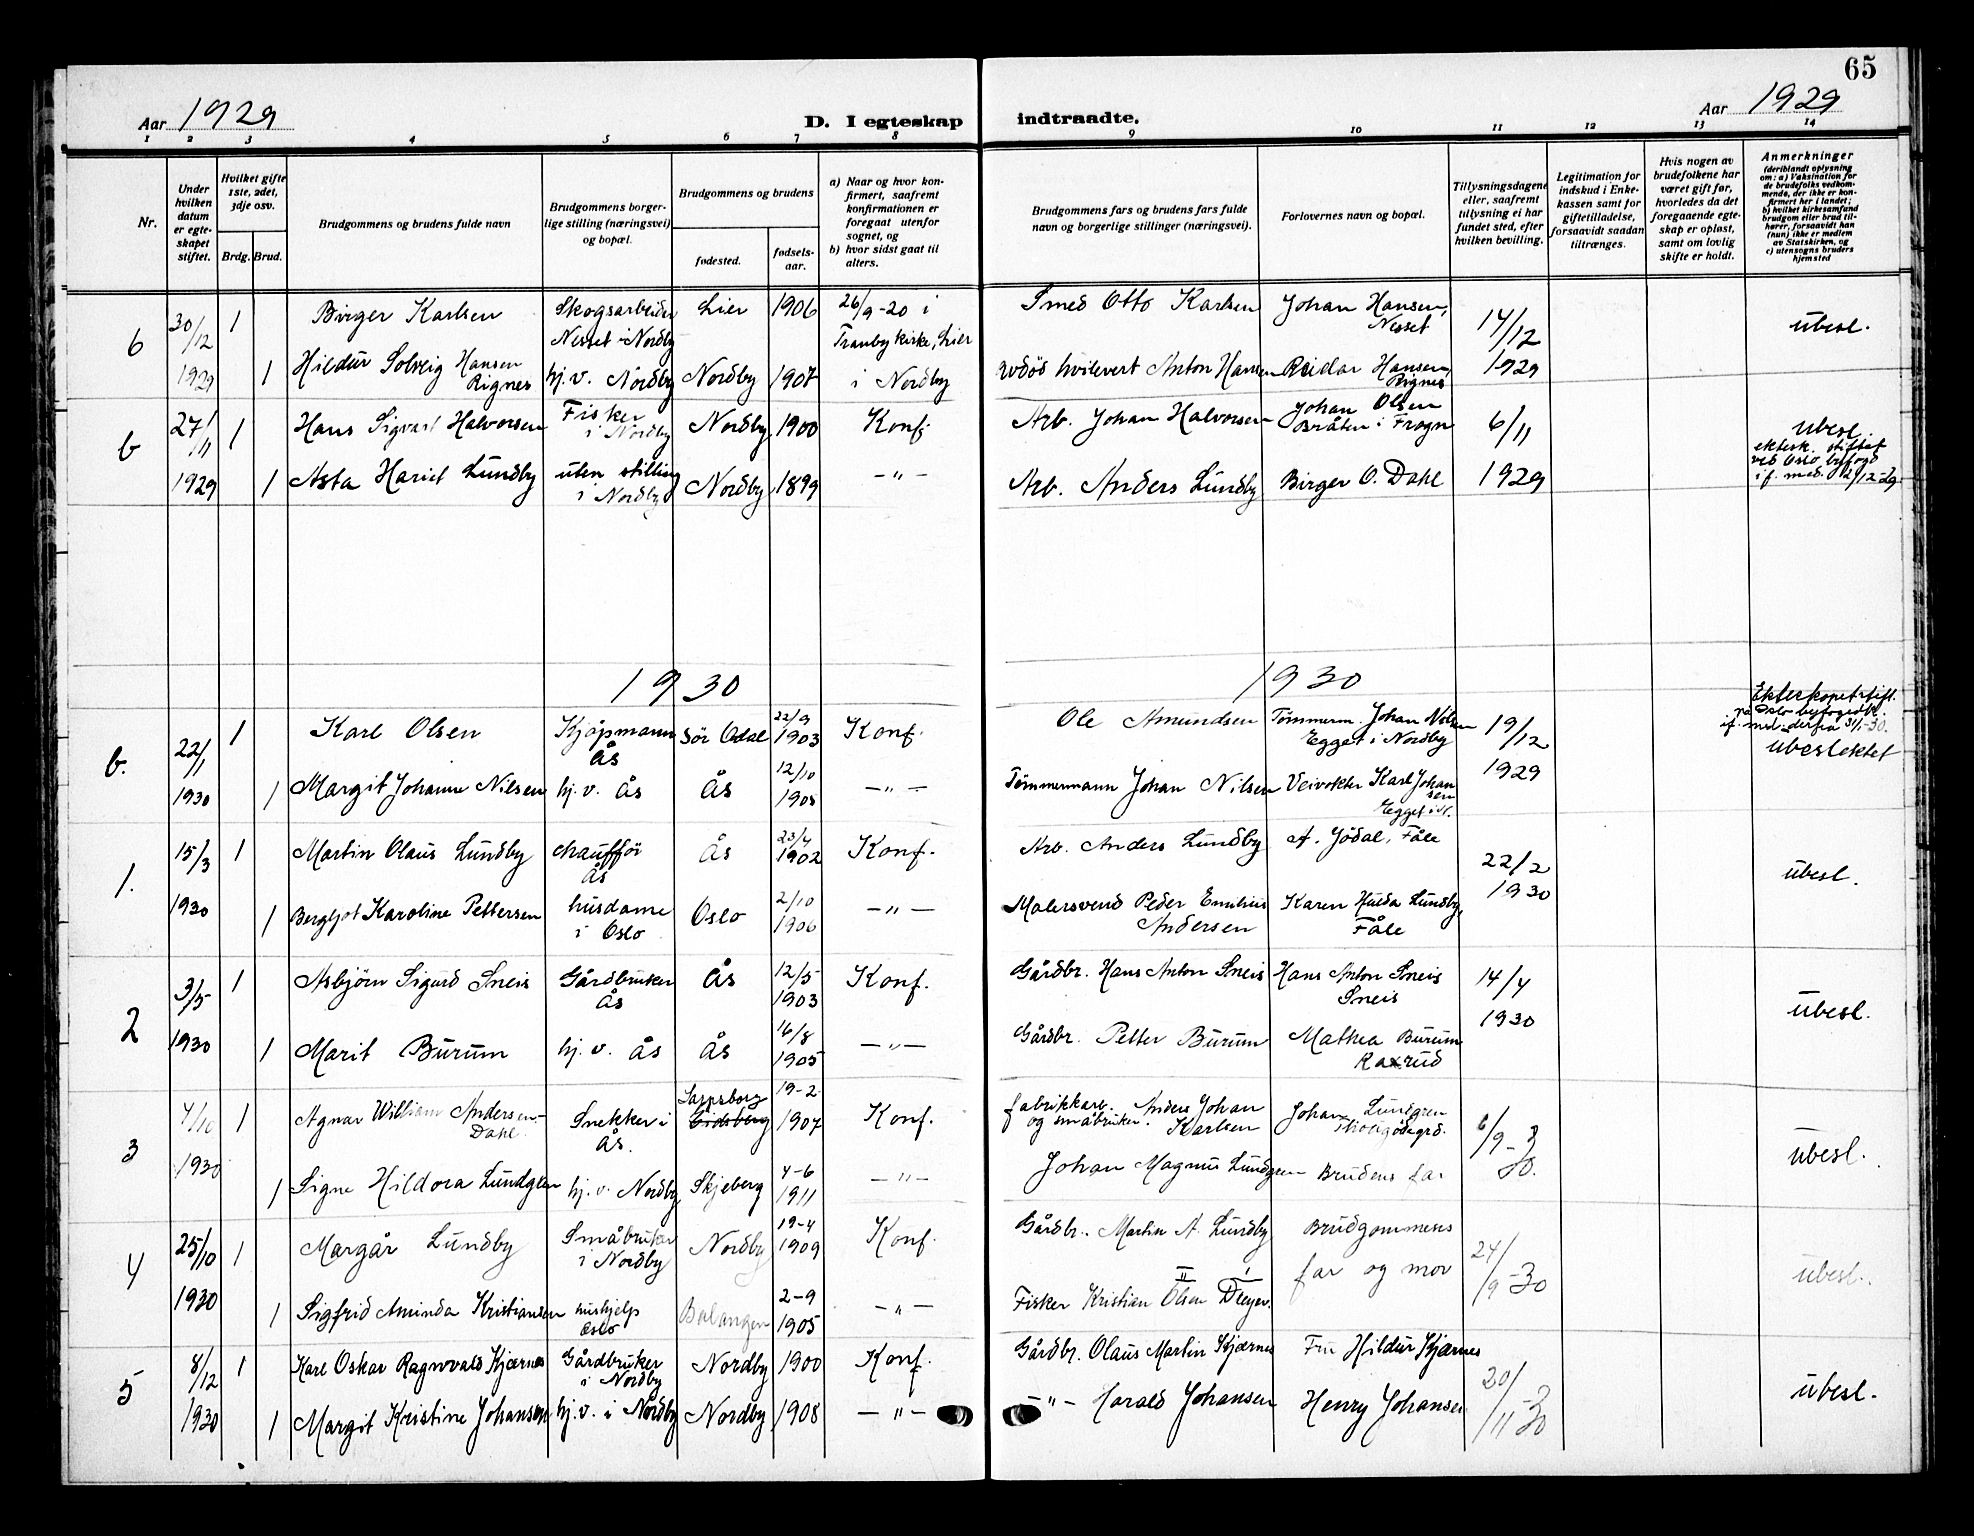 65
Aar 1929
D. I egteskap indtraadte.
Aar 1929
1 2 3 4 5 6 7 8 9 10 11 12 13 14
Nr.
Under hvilken datum er egteskapet stiftet.
Hvilket gifte 1ste, 2det, 3dje osv.
Brdg. Brud.
Brudgommens og brudens fulde navn
Brudgommens borgerlige stilling (næringsvei) og bopæl.
Brudgommens og brudens
fødested.
fødselsaar.
a) Naar og hvor konfirmert, saafremt konfirmationen er foregaat utenfor sognet, og
b) hvor sidst gaat til alters.
Brudgommens fars og brudens fars fulde navn og borgerlige stillinger (næringsvei).
Forlovernes navn og bopæl.
Tillysningsdagene eller, saafremt tillysning ei har fundet sted, efter hvilken bevilling.
Legitimation for indskud i Enkekassen samt for giftetilladelse, forsaavidt saadan tiltrænges.
Hvis nogen av brudefolkene har været gift før, hvorledes da det foregaaende egteskap er opløst, samt om lovlig skifte er holdt.
Anmerkninger (deriblandt oplysning om: a) Vaksination for de brudefolks vedkommende, der ikke er konfirmert her i landet; b) hvilket kirkesamfund brudgom eller brud tilhører, forsaavidt han (hun) ikke er medlem av Statskirken, og c) utensogns bruders hjemsted
6 30/12 1 Birger Karlsen Skogsarbeider Nesset i Nordby Lier 1906 26/9-20 i Tranby kirke, Lier Smed Otto Karlsen Johan Hansen, Nesset 14/12 ubesl.
1929 1 Hildur Solveig Hansen Rignes hj.v. Nordby Nordby 1907 i Nordby Anton Hansen Reidar Hansen, Rignes 1929
b 27/11 1 Hans Sigvart Halvorsen Fisker i Nordby Nordby 1900 Konf. Arb. Johan Halvorsen Johan Olsen Bråten i Frogn 6/11 ubesl.
ektesk. stiftet ved Oslo byfogd if. med. 12/12-29
1929 1 Asta Hariet Lundby uten stilling i Nordby Nordby 1899 -"- Arb. Anders Lundby Birger O. Dahl 1929
1930 1930
b. 22/1 1 Karl Olsen Kjøpmann Ås Sör Odal 22/9 1903 Konf. Ole Amundsen Tömmerm. Johan Nilsen Egget i Nordby 19/12 Ekteskapet stift. på Oslo byfogedk. if. med. derfra 31/1-30. ubeslektet
1930 1 Margit Johanne Nilsen hj.v. Ås Ås 12/10 1905 -"- Tömmermann Johan Nilsen Veivokter Karl Johansen Egget i N. 1929
1. 15/3 1 Martin Olaus Lundby chaufför Ås Ås 23/4 1902 Konf. Arb. Anders Lundby A. Jödal, Fåle 22/2 ubesl.
1930 1 Bergljot Karoline Pettersen husdame i Oslo Oslo 2/10 1906 -"- Malersvend Peder Emilius Andersen Karen Hulda Lundby, Fåle 1930
2 3/5 1 Asbjörn Sigurd Sneis Gårdbruker Ås Ås 12/5 1903 Konf. Gårdbr. Hans Anton Sneis Hans Anton Sneis Sneis 14/4 ubesl.
1930 1 Marit Burum hj.v. Ås Ås 16/8 1905 -"- Gårdbr. Petter Burum Mathea Burum Raxrud 1930
3 4/10 1 Agnar William Andersen-Dahl Snekker i Ås. Sarpsborg Eidsberg 19-2 1907 Konf. fabrikkarb. og småbruker. Anders Johan Karlsen Johan Lundgren 6/9-30. ubesl.
1930 1 Signe Hildora Lundgren hj.v. Nordby Skjeberg 4-6 1911 -"- Johan Magnus Lundgren Brudens far
4 25/10 1 Margår Lundby Småbruker i Nordby Nordby 19-4 1909 Konf. Gårdbr. Martin A. Lundby Brudgommens far og mor 24/9-30 ubesl.
1930 1 Sigfrid Aminda Kristiansen hushjelp Oslo Balangen 2-9 1905 -"- Fisker Kristian Olsen Dreyer.
5 8/12 1 Karl Oskar Ragnvald Kjærnes Gårdbruker i Nordby Nordby 1900 Konf. Gårdbr. Olaus Martin Kjærnes Fru Hildur Kjærnes 20/11-30 ubesl.
1930 1 Margit Kristine Johansen hj.v. i Nordby Nordby 1908 -"- -"- Harald Johansen Henry Johansen